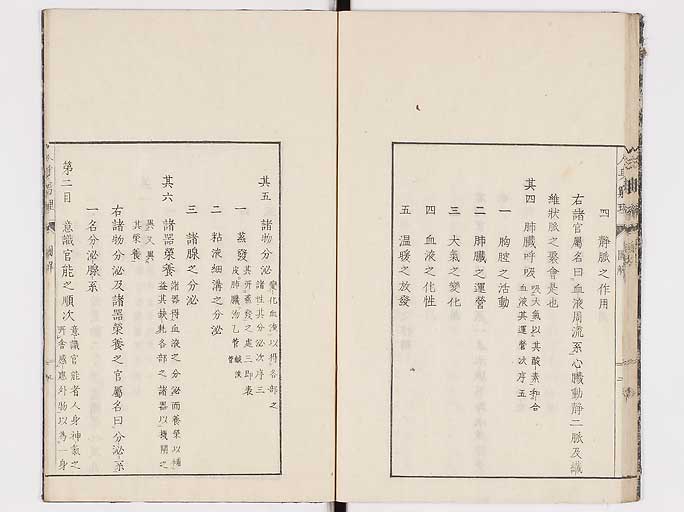 四 靜脈之作用
右諸官屬名曰血液周流系心臟動靜二脈及纖
維狀脈之聚會是也
其四 肺臟呼吸 吸大氣以其酸素和合
血液其運營次序五
一 胸腔之活動
二 肺臟之運營
三 大氣之變化
四 血液之化性
五 溫暖之放發
其五 諸物分泌 變化血液以得各部之
諸性其分泌次序三
一 蒸發 其所蒸發之處三即表
皮肺臟
二 粘液細溝之分泌
三 諸腺之分泌
其六 諸器榮養 諸器得血液之分泌而養榮以補
益其缺耗各部之諸器以機關之
異又異
其榮養
右諸物分泌及諸器榮養之官屬名曰分泌系
一名分泌腺系
第二目 意識官能之順次 意識官能者人身神氣之
所舍感應外物以為一身